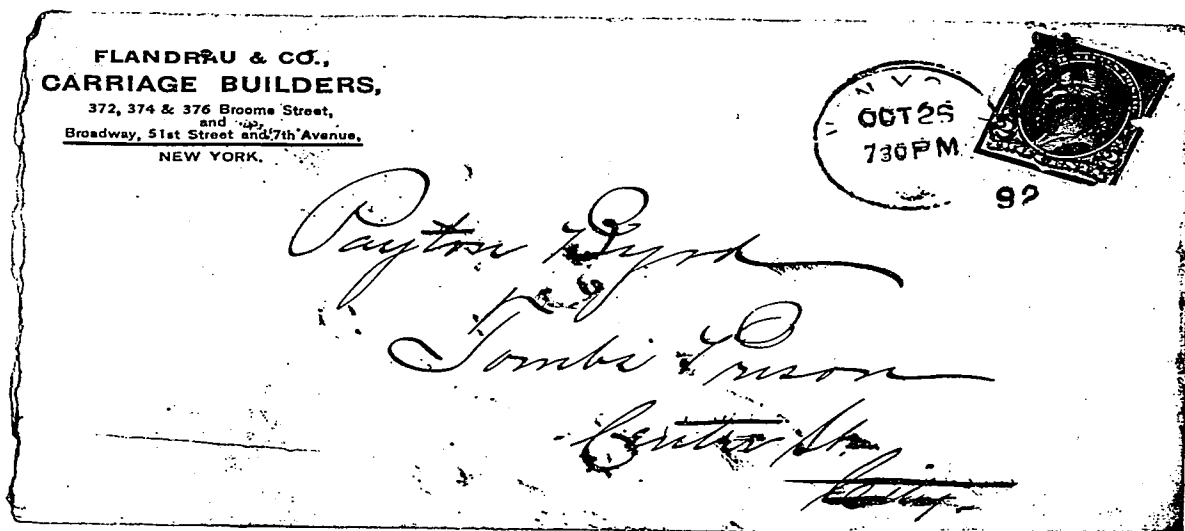 FLANDRAU & CO.,
CARRIAGE BUILDERS,
372, 374 & 376 Broome Street,
and
Broadway, 51st Street and 7th Avenue,
NEW YORK.
OCT 25
730 PM
92
Payton Byrd
Tombs Prison
Centre St.
City.